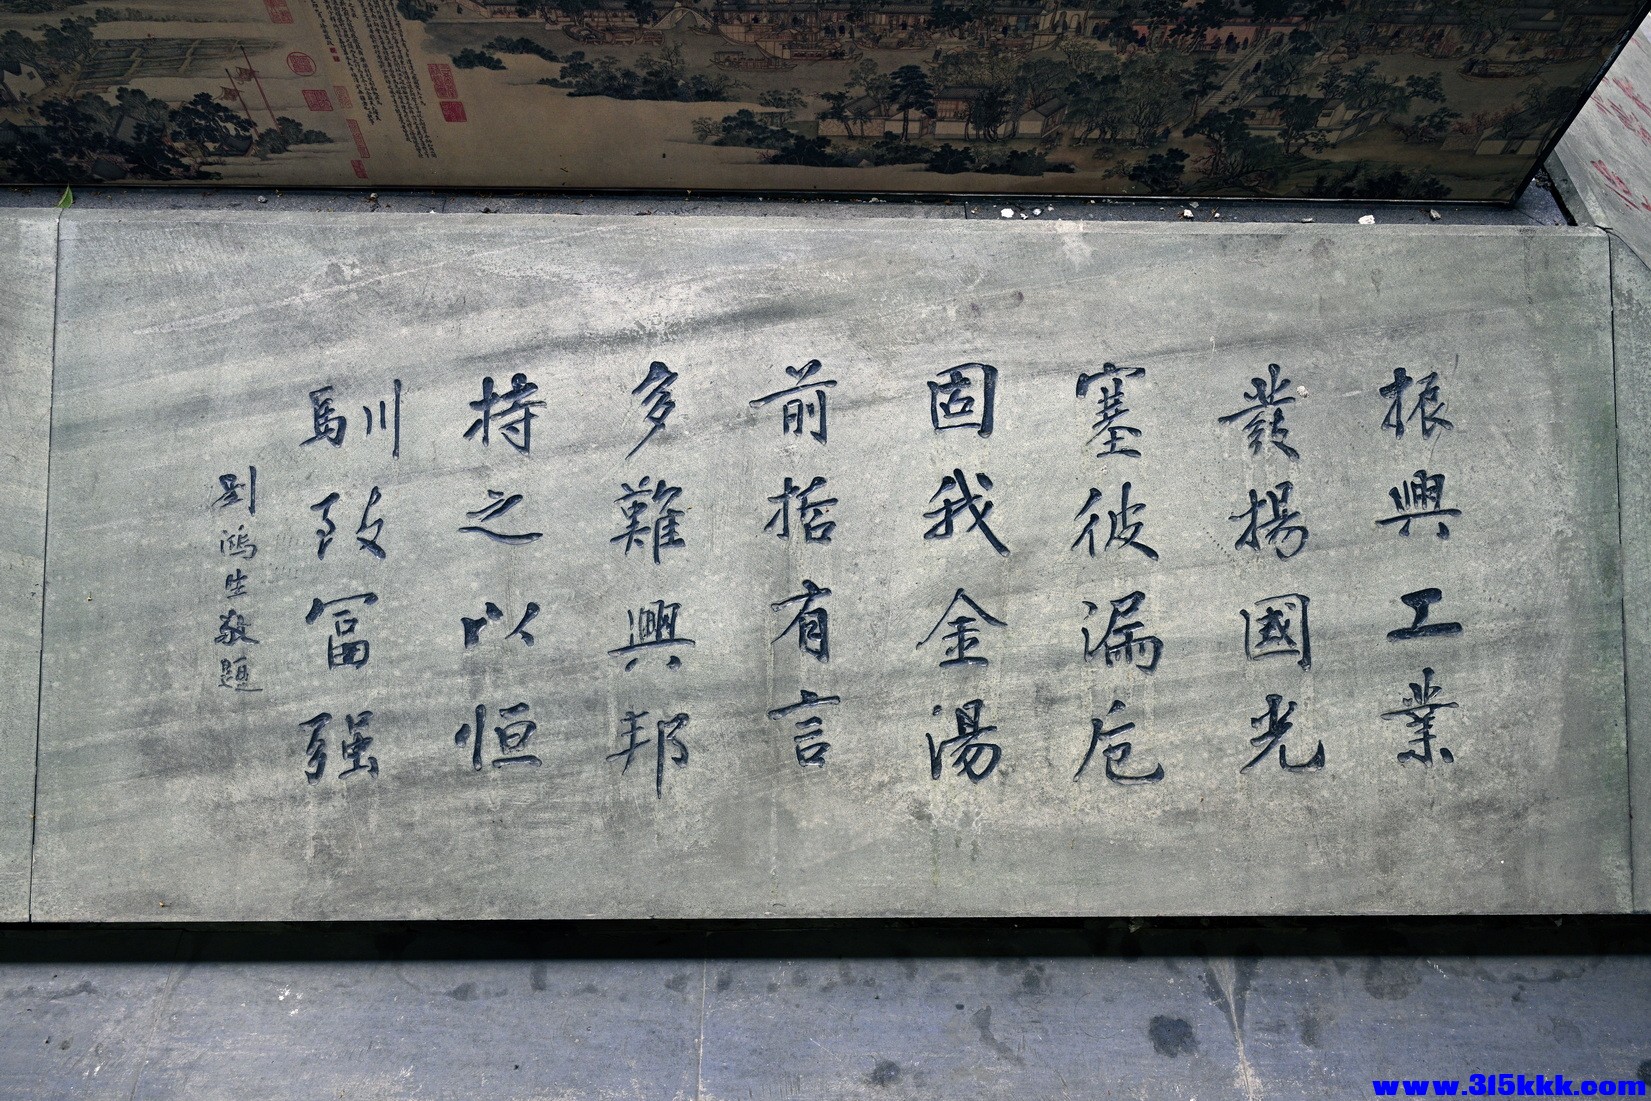 振興工業
發揚國光
塞彼漏卮
固我金湯
前哲有言
多難興邦
持之以恒
馴致富强
劉鴻生敬題
www.315kkk.com